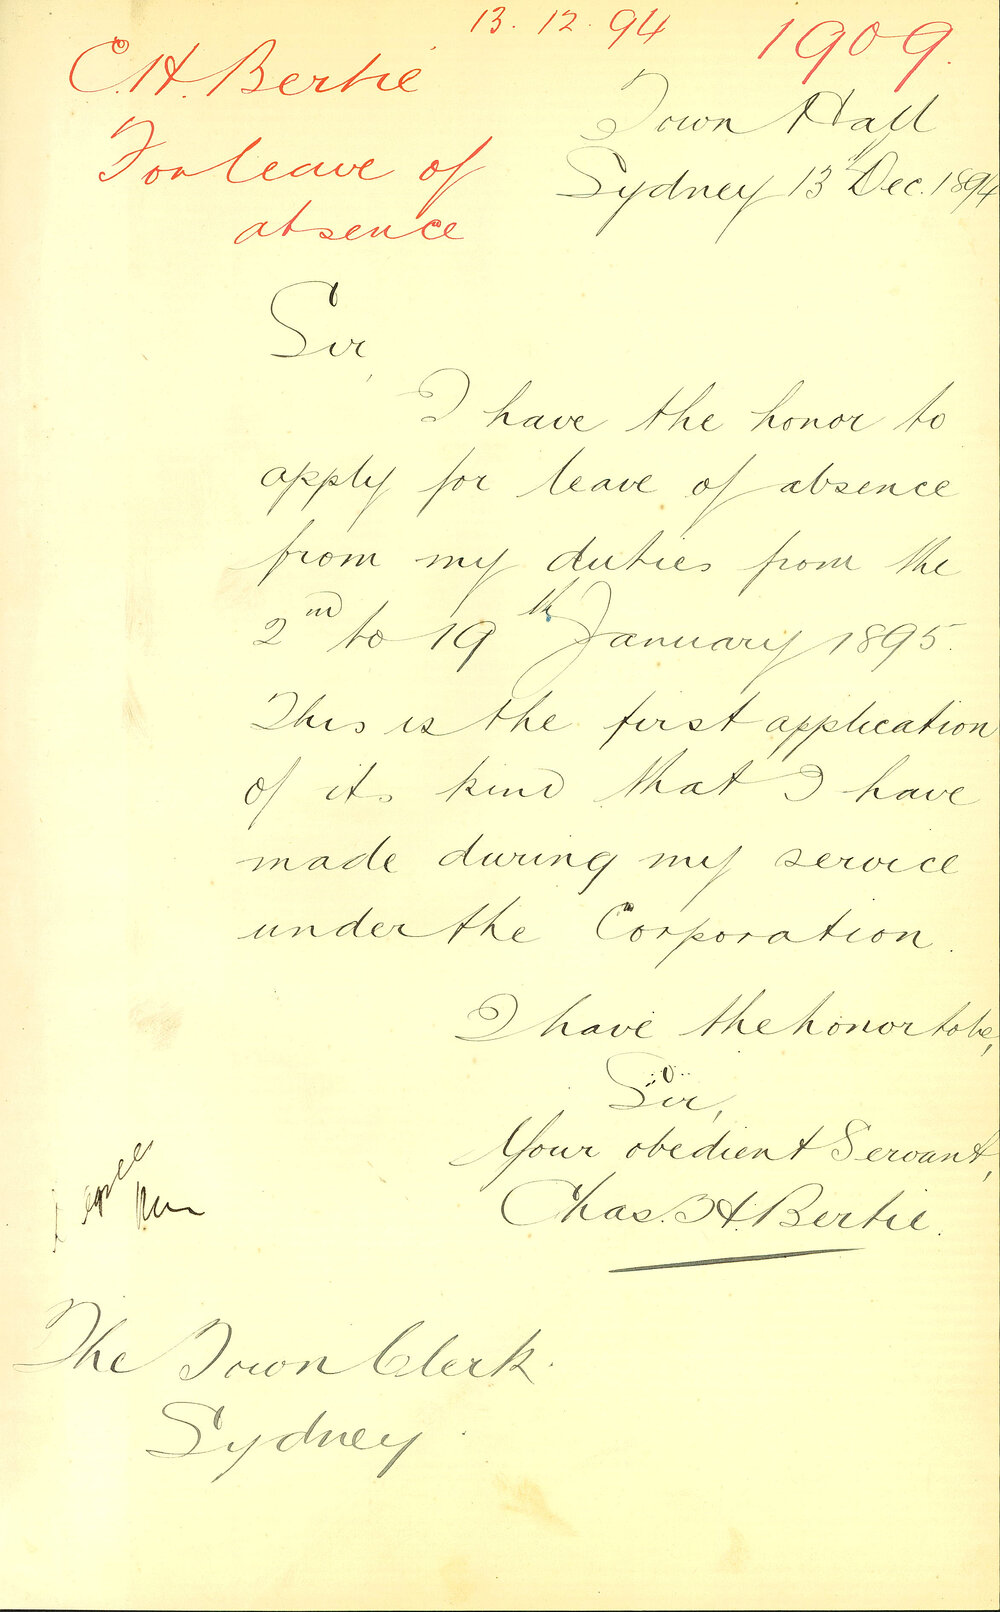 13.12.94
1909.
C.H. Bertie
For leave of
absence
Town Hall
Sydney 13th Dec. 1894
Sir,
I have the honor to
apply for leave of absence
from my duties from the
2nd to 19th January 1895.
This is the first application
of its kind that I have
made during my service
under the Corporation.
I have the honor to be,
Sir,
Your obedient Servant,
Chas. H. Bertie.
The Town Clerk.
Sydney.